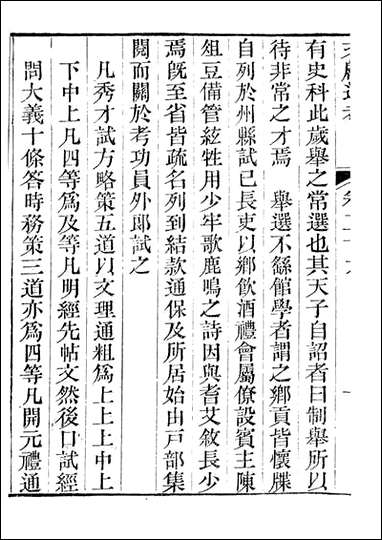 有史科此歲舉之常選也其天子自詔者曰制舉所以
待非常之才焉　舉選不繇館學者謂之鄉貢皆懷牒
自列於州縣試已長吏以鄉飲酒禮會屬僚設賓主陳
俎豆備管絃牲用少牢歌鹿鳴之詩因與耆艾敘長少
焉既至省皆疏名列到結款通保及所居始由戸部集
閱而關於考功員外郎試之
凡秀才試方略策五道以文理通粗爲上上上中上
下中上凡四等爲及等凡明經先帖文然後口試經
問大義十條答時務策三道亦爲四等凡開元禮通